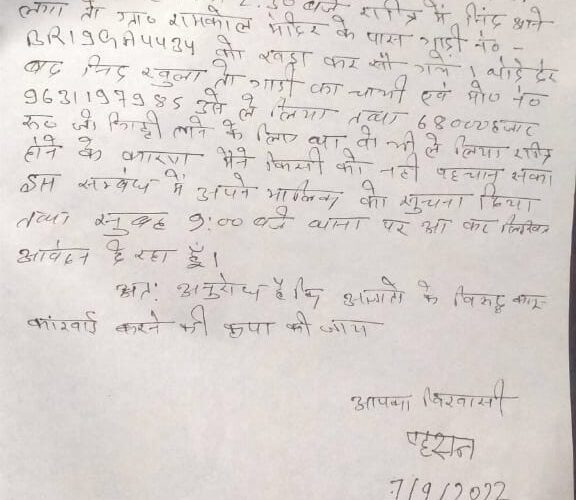 लगा तो ग्रा० रामकोल मंदिर के पास गाड़ी नं० -
BR19GA4434 को खड़ा कर सो गये। थोड़े देर
बाद निंद खुला तो गाड़ी का चाभी एवं मो० नं०
9631197985 उसे ले लिया तथा 68000 हजार
रू० जो गिट्टी लाने के लिए था वो भी ले लिया रात्रि
होने के कारण मैने किसी को नहीं पहचान सका
इस सम्बंध में अपने मालिक को सुचना दिया
तथा सुबह 9:00 बजे थाना पर आ कर लिखित
आवेदन दे रहा हूँ।
अत: अनुरोध है कि अज्ञातो के विरूद्ध कार-
कारवाई करने की कृपा की जाय
आपका विश्वासी
एहसान
7/9/2022